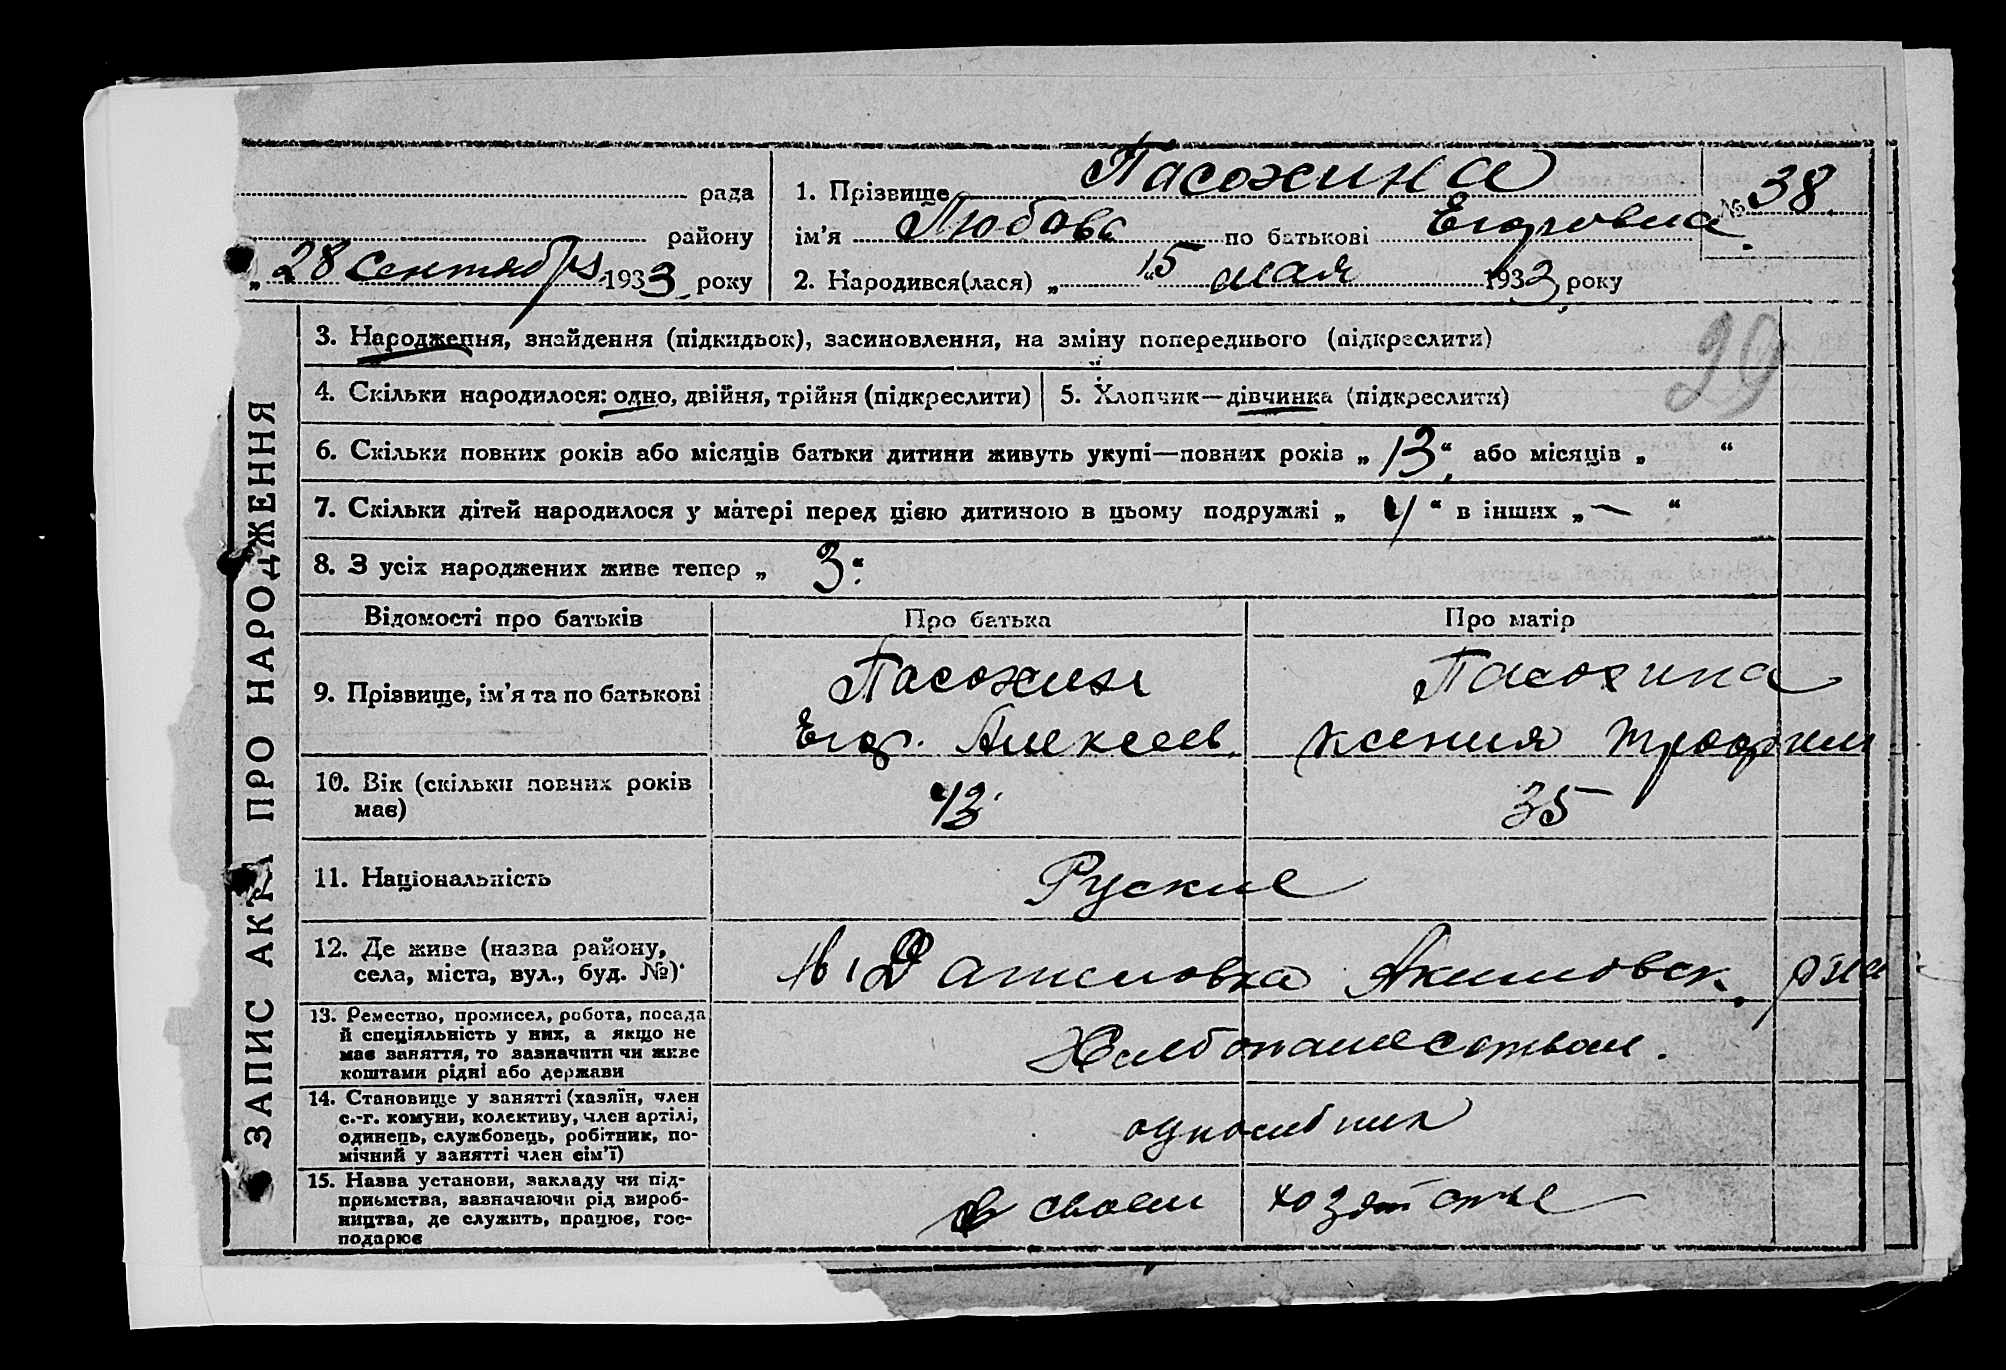 рада
району
„ 28 Сентября 1933 року
1. Прізвище Пасожина
№ 38
ім’я Любовь по батькові Егоровна
2. Народився(лася) „ 15 “ мая 1933 року
29
ЗАПИС АКТА ПРО НАРОДЖЕННЯ
3. Народження, знайдення (підкидьок), засиновлення, на зміну попереднього (підкреслити)
4. Скільки народилося: одно, двійня, трійня (підкреслити)
5. Хлопчик—дівчинка (підкреслити)
6. Скільки повних років або місяців батьки дитини живуть укупі—повних років „ 13 “ або місяців „ “
7. Скільки дітей народилося у матері перед цією дитиною в цьому подружжі „ 4 “ в інших „ — “
8. З усіх народжених живе тепер „ 3 “
Відомості про батьків
Про батька
Про матір
9. Прізвище, ім’я та по батькові
Пасожин
Егор. Алексеев.
Пасожина
Ксения Трофим
10. Вік (скільки повних років
має)
43
35
11. Національність
Руские
12. Де живе (назва району,
села, міста, вул., буд. №)
Акимовск. р-на
13. Ремество, промисел, робота, посада
й спеціяльність у них, а якщо не
має заняття, то зазначити чи живе
коштами рідні або держави
Хлебопашеством.
14. Становище у занятті (хазяїн, член
с.-г. комуни, колективу, член артілі,
одинець, службовець, робітник, по-
мічний у занятті член сім’ї)
15. Назва установи, закладу чи під-
приємства, зазначаючи рід вироб-
ництва, де служить, працює, гос-
подарює
в своем хозяйстве